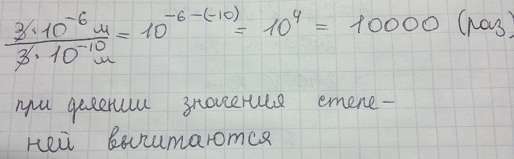 3·10⁻⁶ м / 3·10⁻¹⁰ м = 10⁻⁶⁻⁽⁻¹⁰⁾ = 10⁴ = 10000 (раз)
при делении значения степе-
ней вычитаются